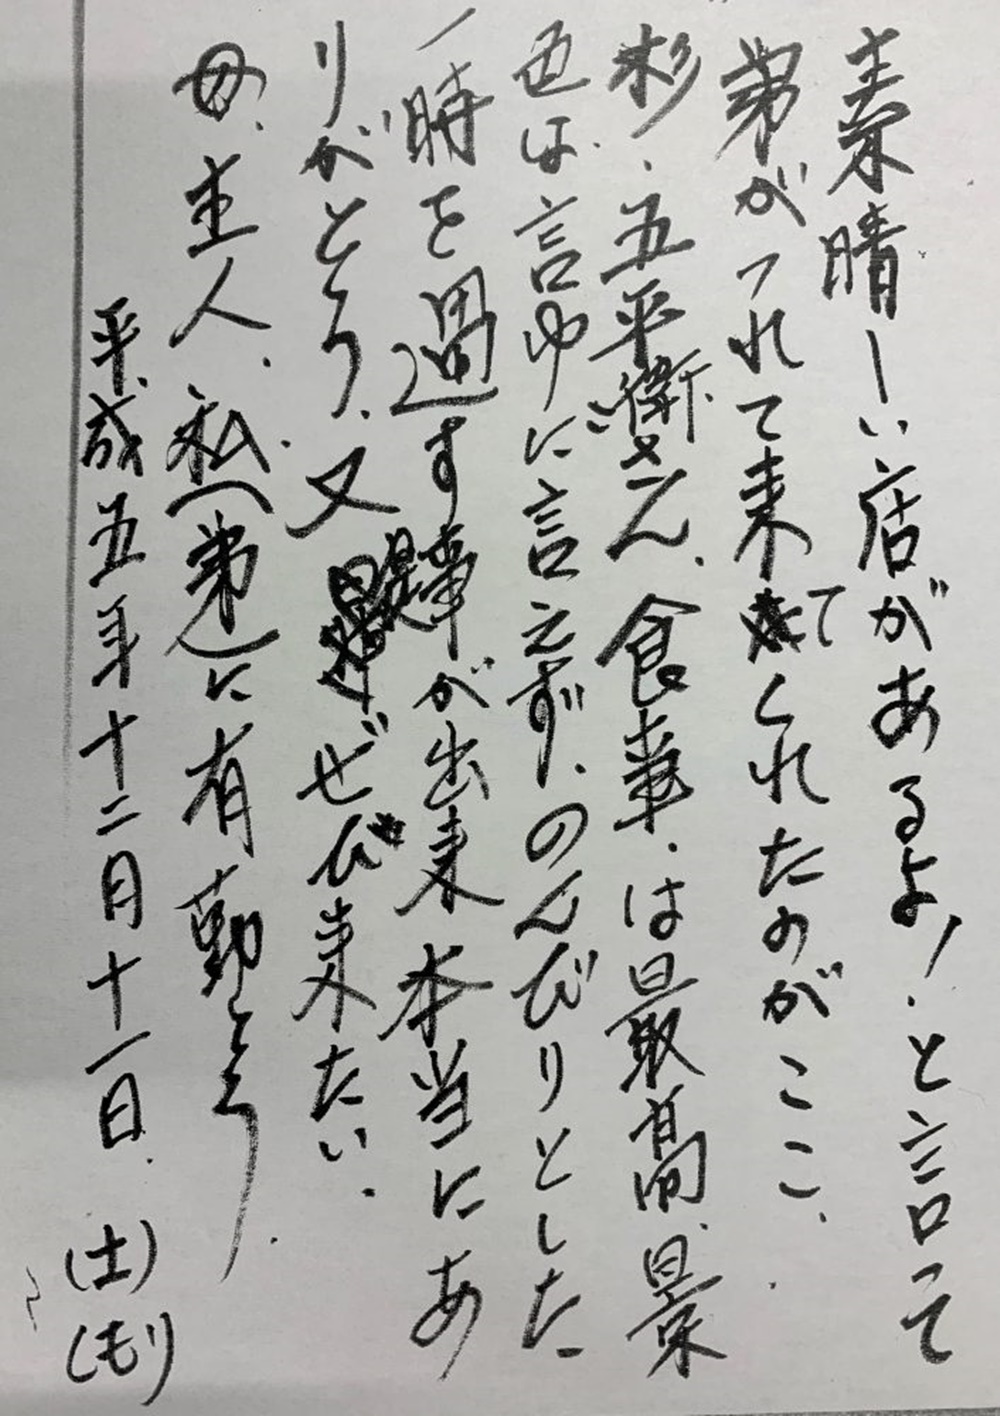 素晴しい店があるよ!と言って
弟がつれて来てくれたのがここ、
杉・五平衛さん、食事は最高、景
色は言ゆに言えず、のんびりとした
一時を過す事が出来本当にあ
りがとう、又ぜひ来たい。
母、主人、私(弟)に有難とう。
平成五年十二月十一日、(土)(もり)